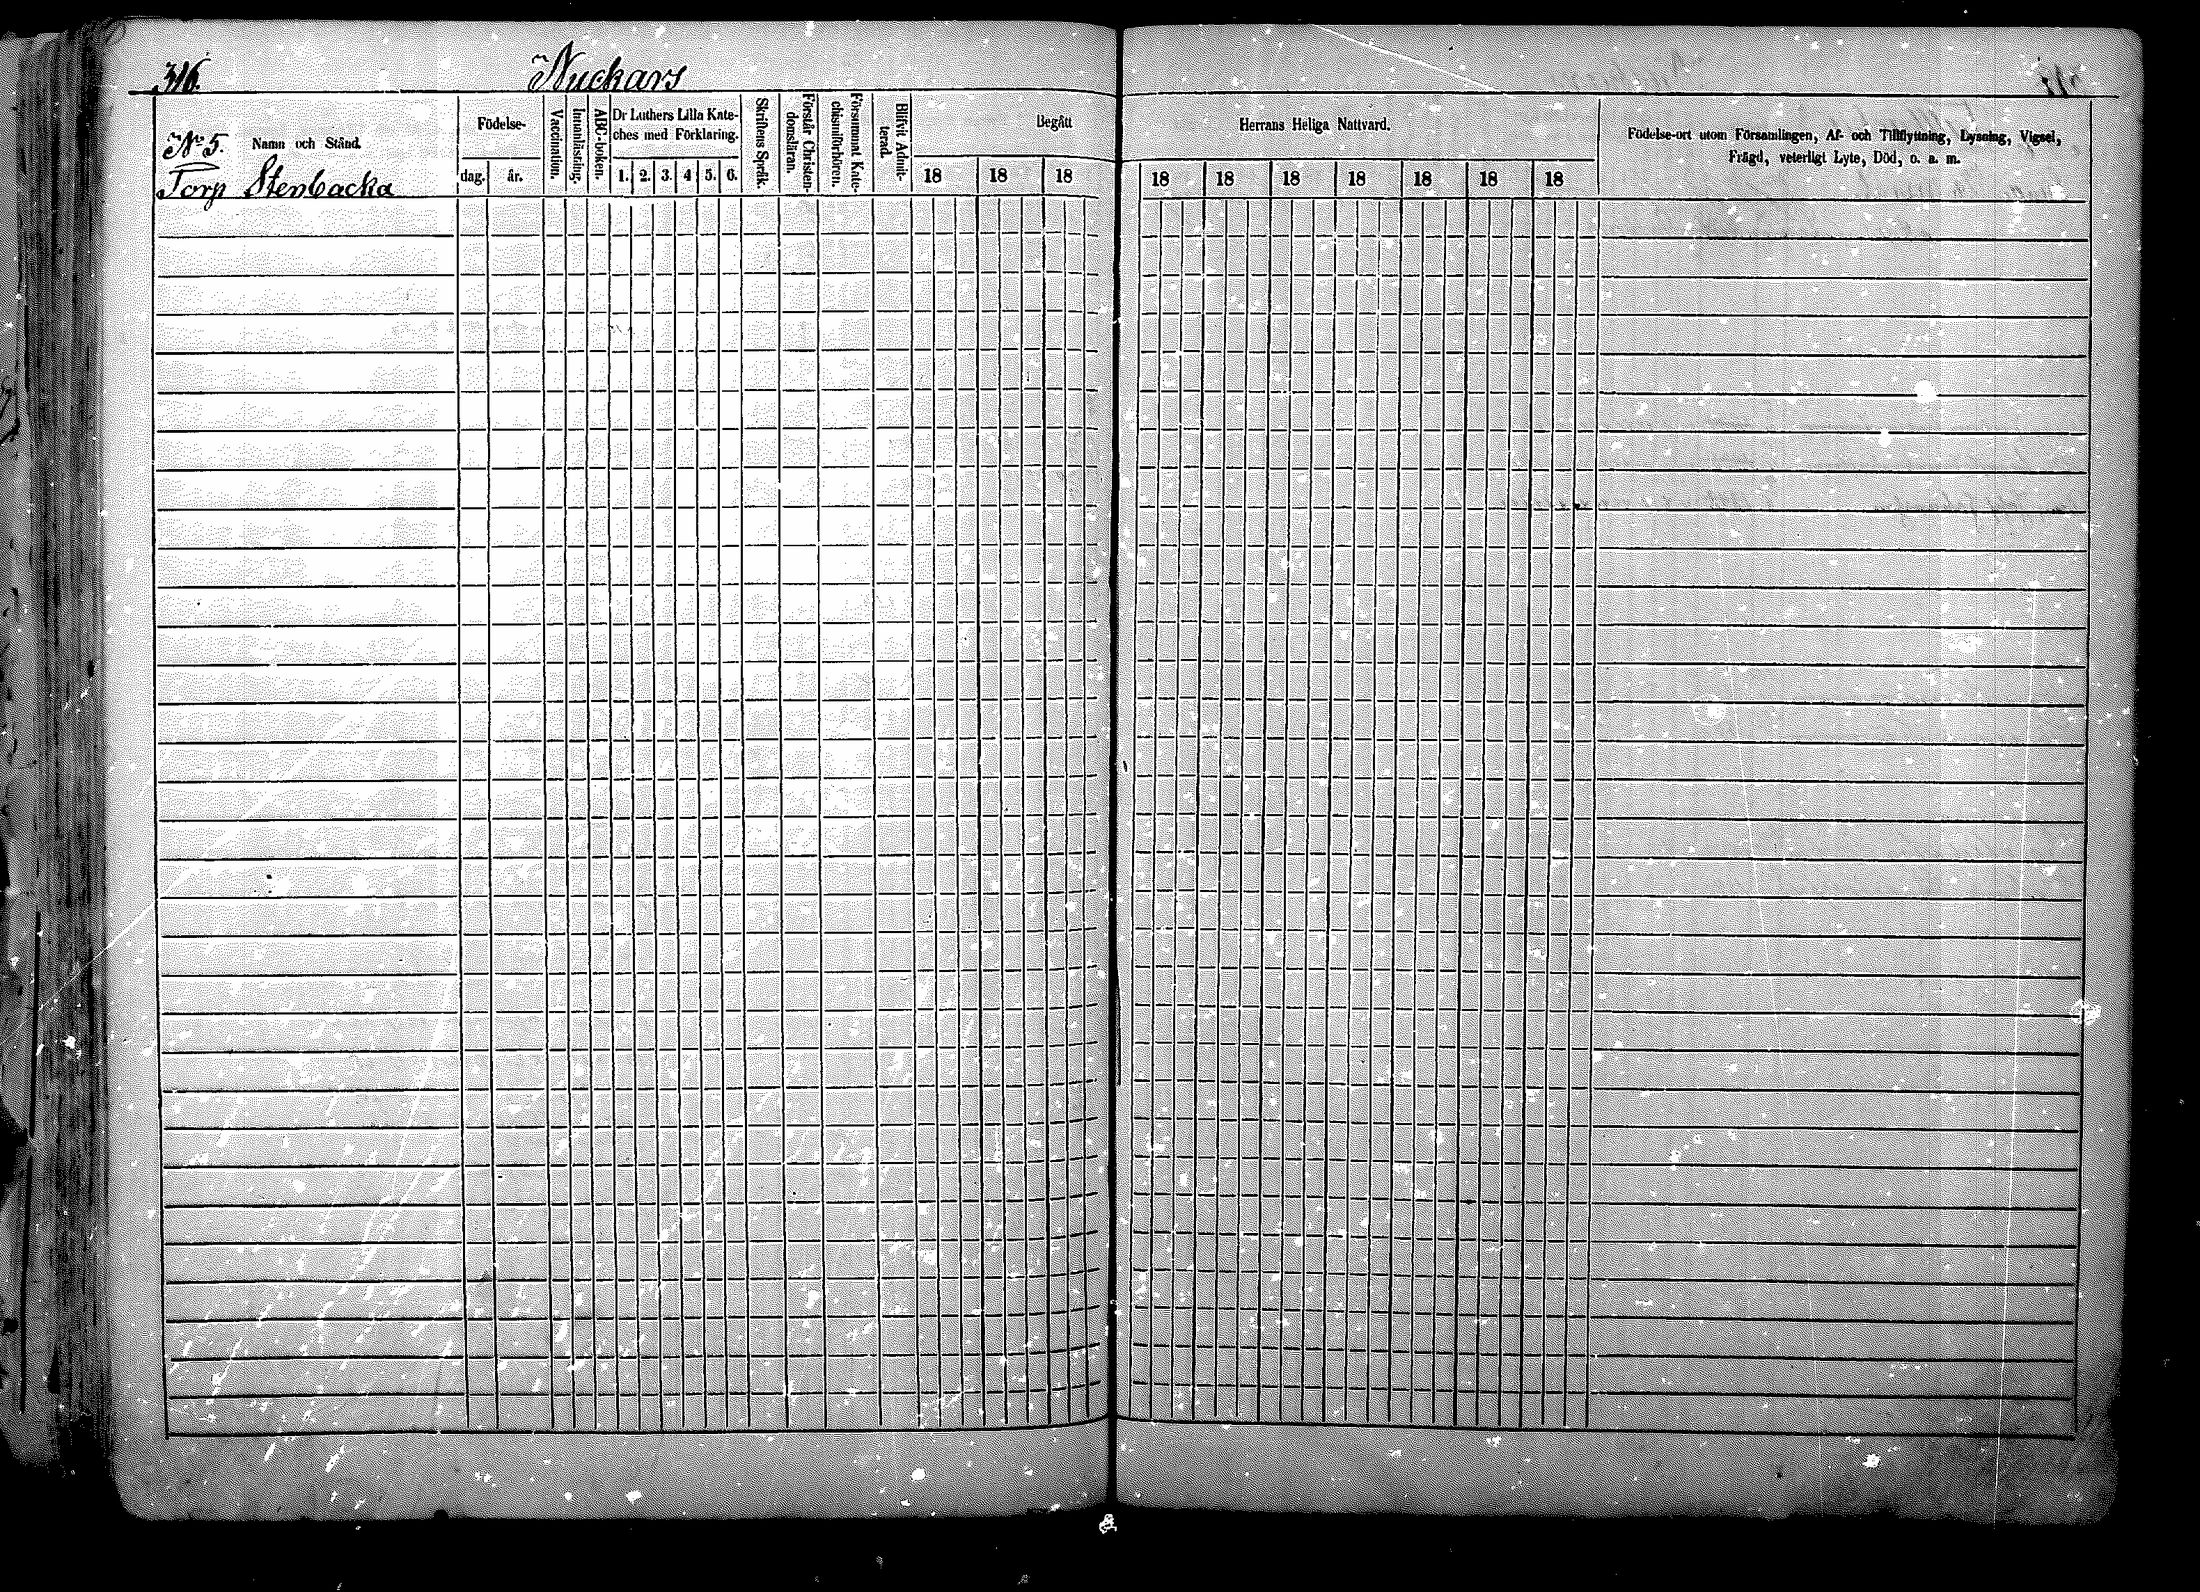 316.
Nuckars
No 5.
Namn och Stånd.
Torp Stenbacka
Födelse-
dag. år.
Vaccination.
Innanläsning.
ABC-boken.
Dr Luthers Lilla Kate-
ches med Förklaring.
1. 2. 3. 4 5. 6.
Skriftens Språk.
Förstår Christen-
domsläran.
Försummat Kate-
chismiförhören.
Blifvit Admit-
terad.
Begått
18 18 18
Herrans Heliga Nattvard.
18 18 18 18 18 18 18
Födelse-ort utom Församlingen, Af- och Tillflyttning, Lysning, Vigsel,
Frägd, veterligt Lyte, Död, o. a. m.